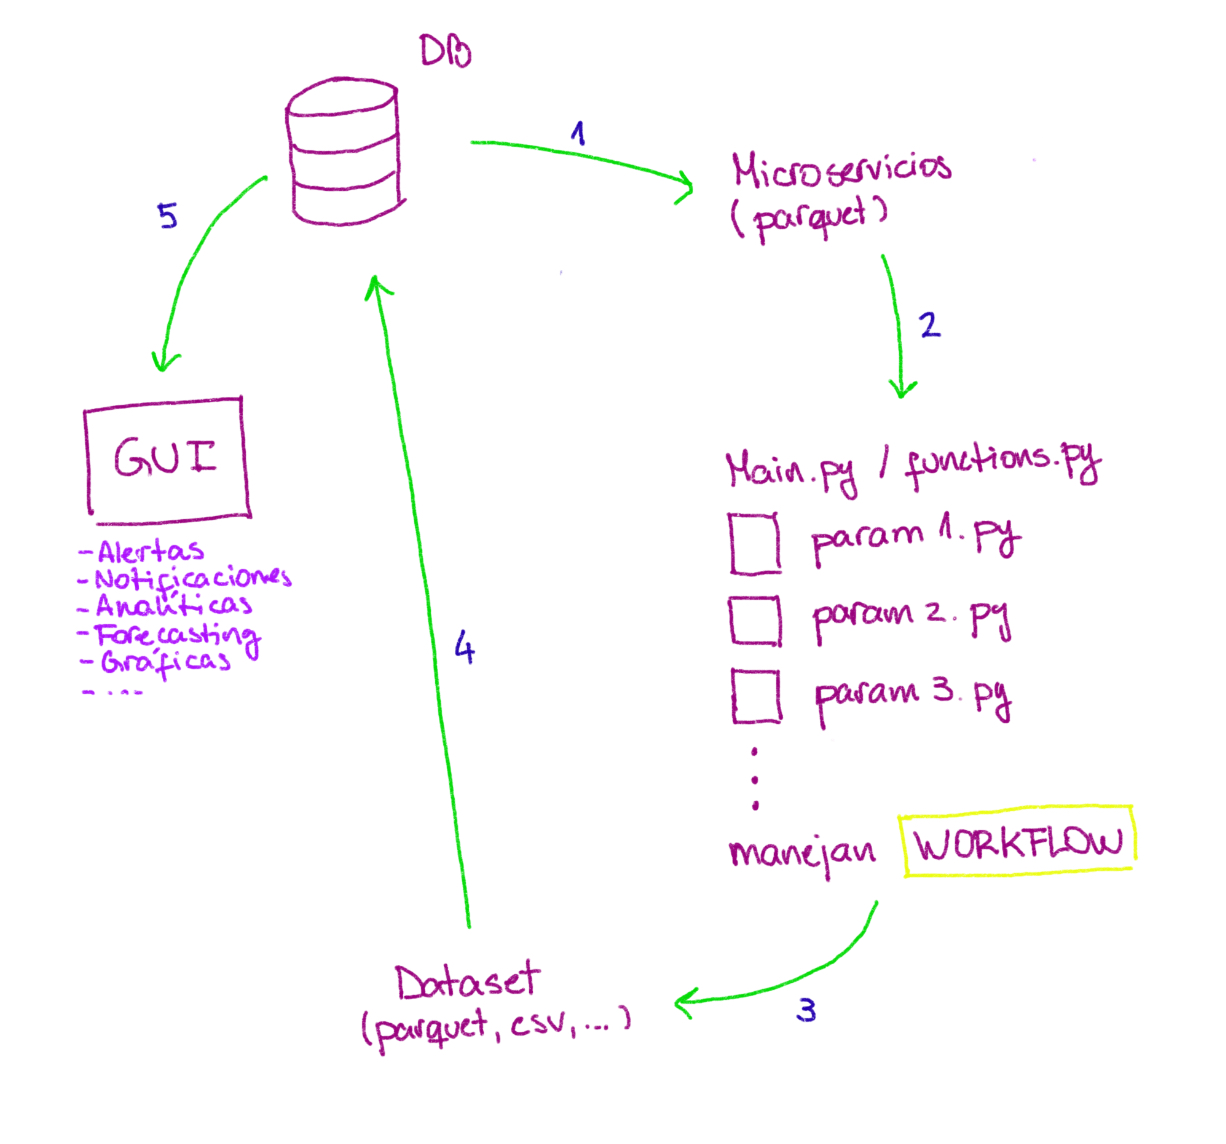 DB
1
Microservicios
(parquet)
2
Main.py / functions.py
param 1.py
param 2.py
param 3.py
manejan WORKFLOW
3
Dataset
(parquet, csv, ...)
4
5
GUI
- Alertas
- Notificaciones
- Analíticas
- Forecasting
- Gráficas
- ...